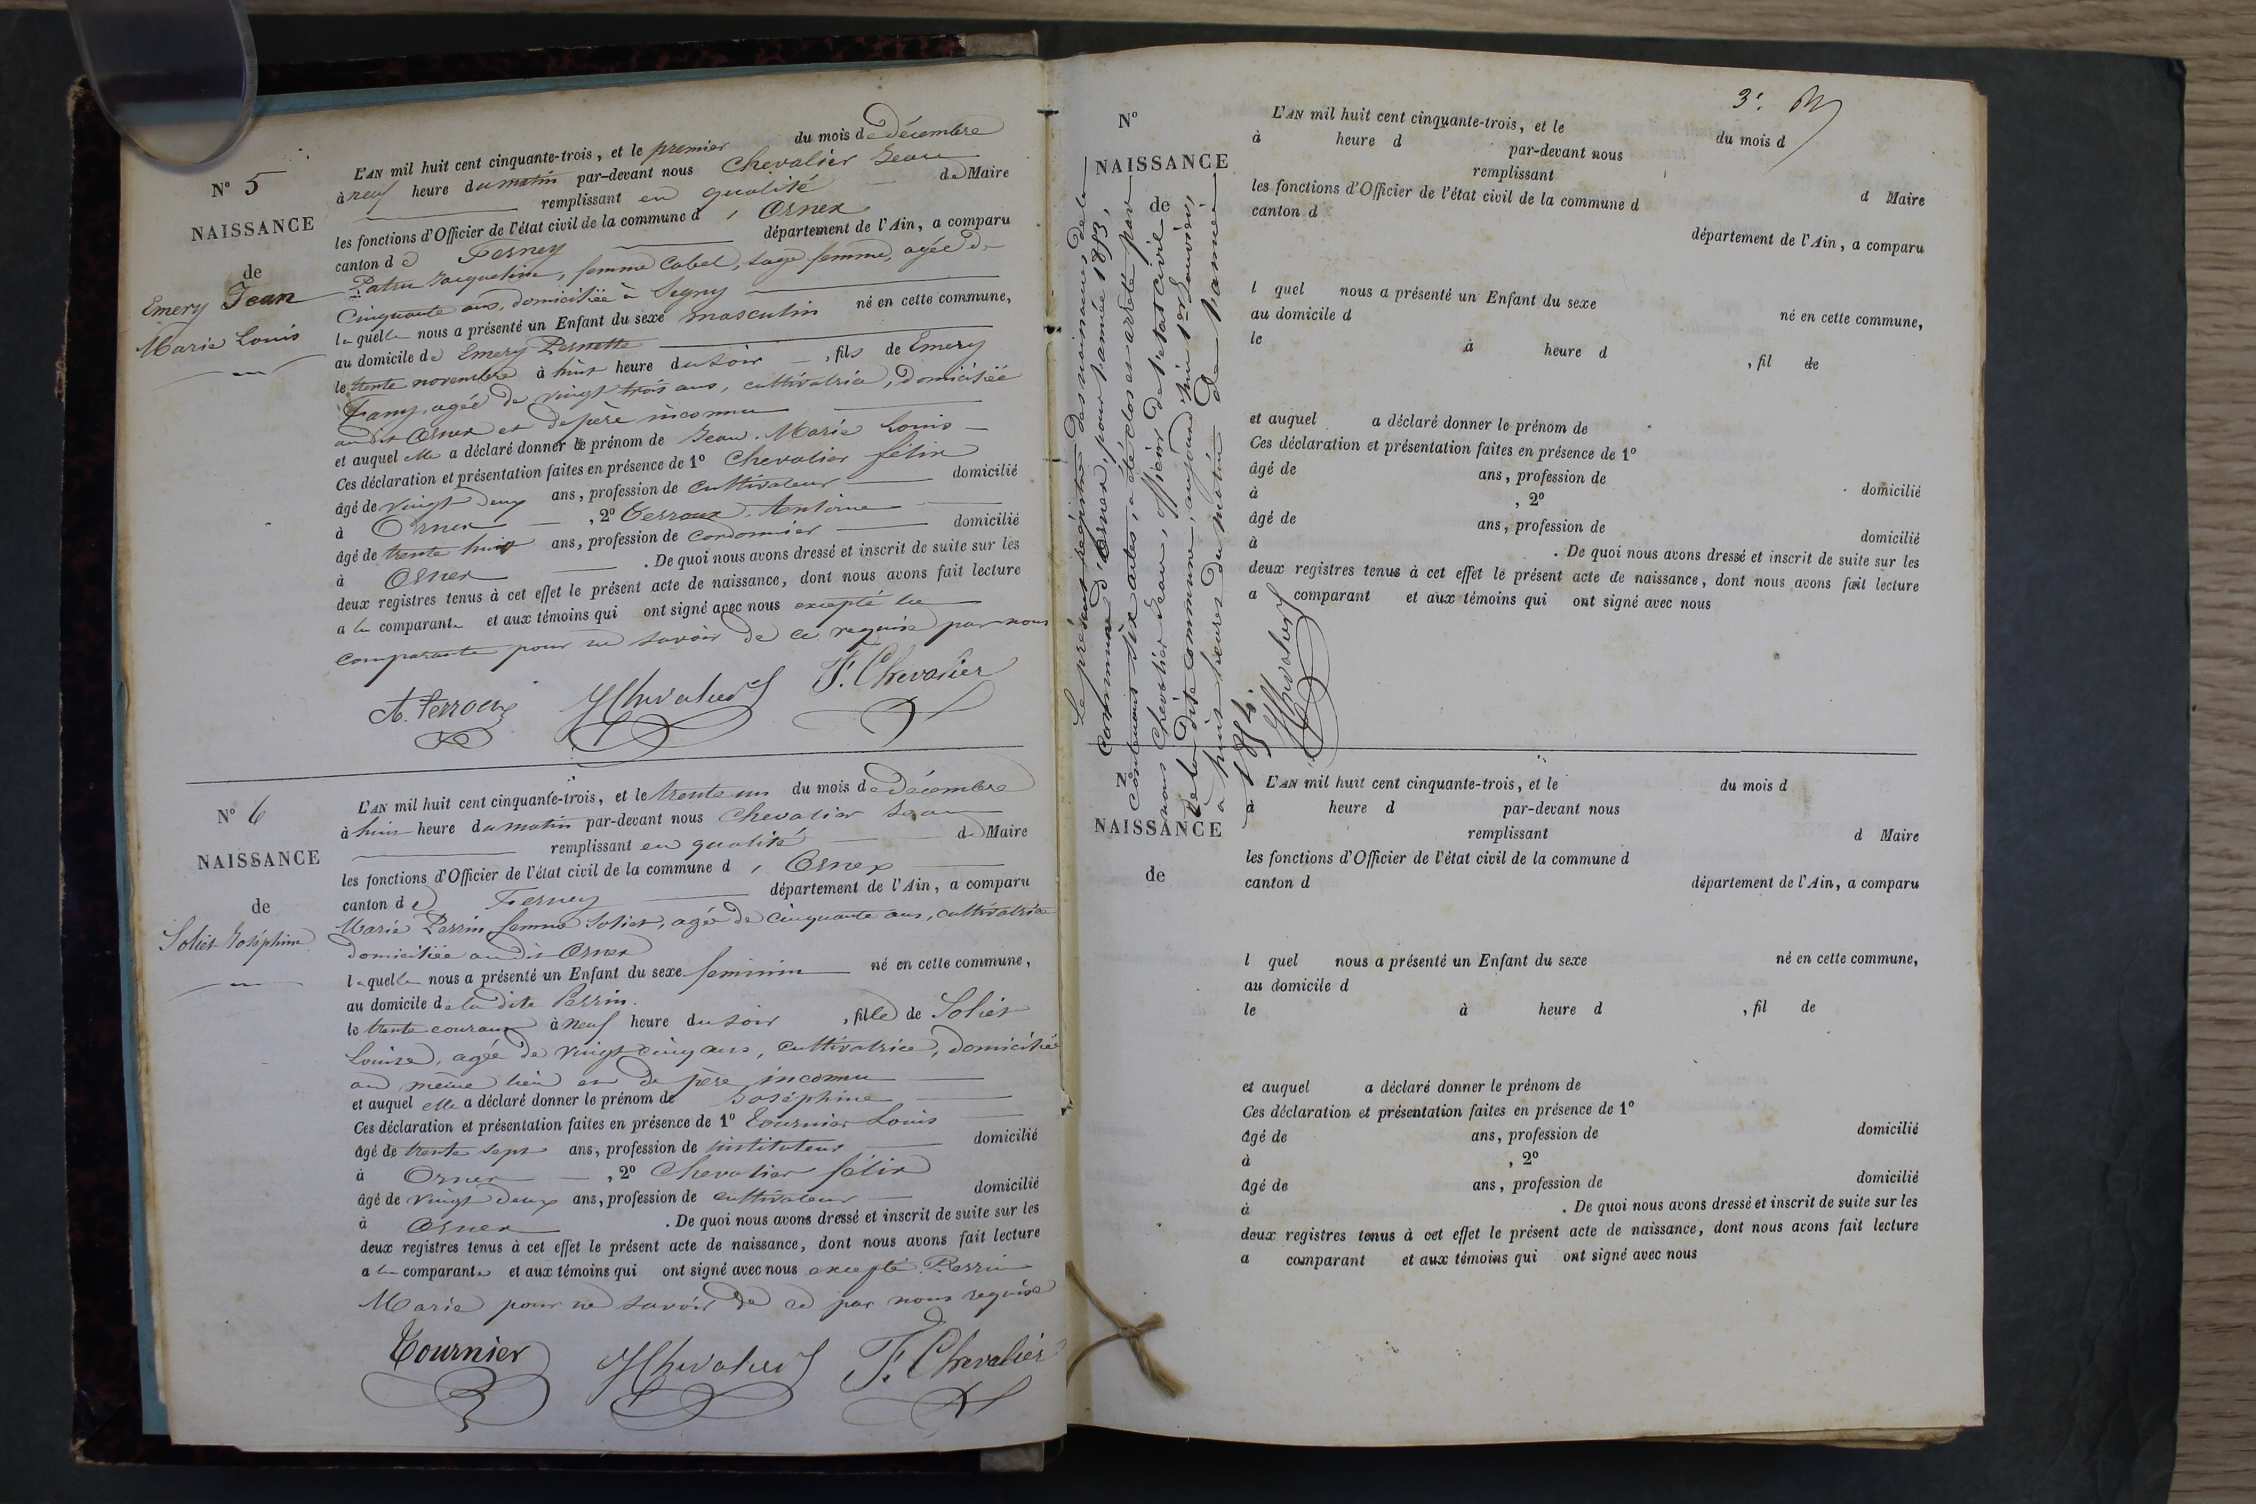 N° 5
NAISSANCE
de
Emery Jean
Marie Louis
L'AN mil huit cent cinquante-trois, et le premier du mois de décembre
à neuf heure du matin par-devant nous Chevalier Jean
remplissant en qualité de Maire
les fonctions d'Officier de l'état civil de la commune d' Ornex
canton de Ferney département de l'Ain, a comparu
Patru Jacqueline, femme Cabel, sage femme, agée de
Cinquante ans, domiciliée à Segny
laquelle nous a présenté un Enfant du sexe masculin né en cette commune,
au domicile de Emery Pernette
le trente novembre à huit heure du soir, fils de Emery
Fany, agée de vingt trois ans, cultivatrice, domiciliée
audit Ornex et de père inconnu
et auquel elle a déclaré donner le prénom de Jean Marie Louis
Ces déclaration et présentation faites en présence de 1° Chevalier félix
âgé de vingt deux ans, profession de cultivateur domicilié
à Ornex, 2° Terroux Antoine
âgé de trente huit ans, profession de cordonnier domicilié
à Ornex. De quoi nous avons dressé et inscrit de suite sur les
deux registres tenus à cet effet le présent acte de naissance, dont nous avons fait lecture
a la comparante et aux témoins qui ont signé avec nous excepté la
comparante pour ne savoir de ce requise par nous
A. Terroux JChevalier F. Chevalier
N° 6
NAISSANCE
de
Soliet Joséphine
L'AN mil huit cent cinquante-trois, et le trente un du mois de décembre
à huit heure du matin par-devant nous Chevalier Jean
remplissant en qualité de Maire
les fonctions d'Officier de l'état civil de la commune d' Ornex
canton de Ferney département de l'Ain, a comparu
Marie Perrin femme Soliet, agée de cinquante ans, cultivatrice
domiciliée audit Ornex
laquelle nous a présenté un Enfant du sexe feminin né en cette commune,
au domicile de la dite Perrin.
le trente courant à neuf heure du soir, fille de Soliet
Louise, agée de vingt cinq ans, cultivatrice, domiciliée
au même lieu et de père inconnu
et auquel elle a déclaré donner le prénom de Joséphine
Ces déclaration et présentation faites en présence de 1° Tournier Louis
âgé de trente sept ans, profession de instituteur domicilié
à Ornex, 2° Chevalier félix
âgé de vingt deux ans, profession de cultivateur domicilié
à Ornex. De quoi nous avons dressé et inscrit de suite sur les
deux registres tenus à cet effet le présent acte de naissance, dont nous avons fait lecture
a la comparante et aux témoins qui ont signé avec nous excepté Perrin
Marie pour ne savoir de ce par nous requise
Tournier JChevalier F. Chevalier
3e.
N°
NAISSANCE
de
Le présent régistre des naissances de la
Commune d'Ornex, pour l'année 1853,
Contenant six actes, a été clos et arrêté par
nous Chevalier Jean, officier de l'état civil
de la dite commune, aujourd'hui 1er Janvier,
a huit heures du matin de l'année
1854.
JChevalier
L'AN mil huit cent cinquante-trois, et le du mois d
à heure d par-devant nous
remplissant d Maire
les fonctions d'Officier de l'état civil de la commune d
canton d département de l'Ain, a comparu
l quel nous a présenté un Enfant du sexe né en cette commune,
au domicile d
le à heure d , fil de
et auquel a déclaré donner le prénom de
Ces déclaration et présentation faites en présence de 1°
âgé de ans, profession de domicilié
à , 2°
âgé de ans, profession de domicilié
à . De quoi nous avons dressé et inscrit de suite sur les
deux registres tenus à cet effet le présent acte de naissance, dont nous avons fait lecture
a comparant et aux témoins qui ont signé avec nous
N
NAISSANCE
de
L'AN mil huit cent cinquante-trois, et le du mois d
à heure d par-devant nous
remplissant d Maire
les fonctions d'Officier de l'état civil de la commune d
canton d département de l'Ain, a comparu
l quel nous a présenté un Enfant du sexe né en cette commune,
au domicile d
le à heure d , fil de
et auquel a déclaré donner le prénom de
Ces déclaration et présentation faites en présence de 1°
âgé de ans, profession de domicilié
à , 2°
âgé de ans, profession de domicilié
à . De quoi nous avons dressé et inscrit de suite sur les
deux registres tenus à cet effet le présent acte de naissance, dont nous avons fait lecture
a comparant et aux témoins qui ont signé avec nous